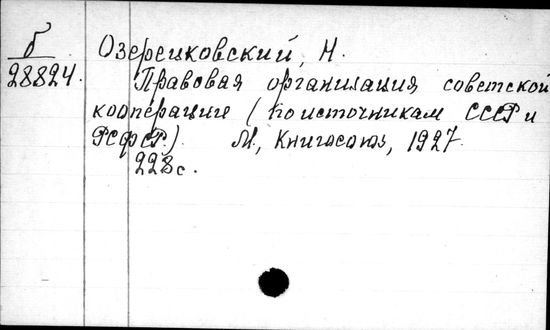 Б
28824.
Озерецковский, Н.
Правовая организация советской
кооперации (по источникам СССР и
РСФСР.) М., Книгосоюз, 1927.
228 с.